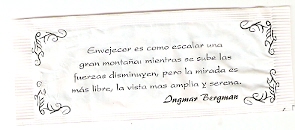 Envejecer es como escalar una
gran montaña: mientras se sube las
fuerzas disminuyen, pero la mirada es
más libre, la vista mas amplia y serena.
Ingmar Bergman